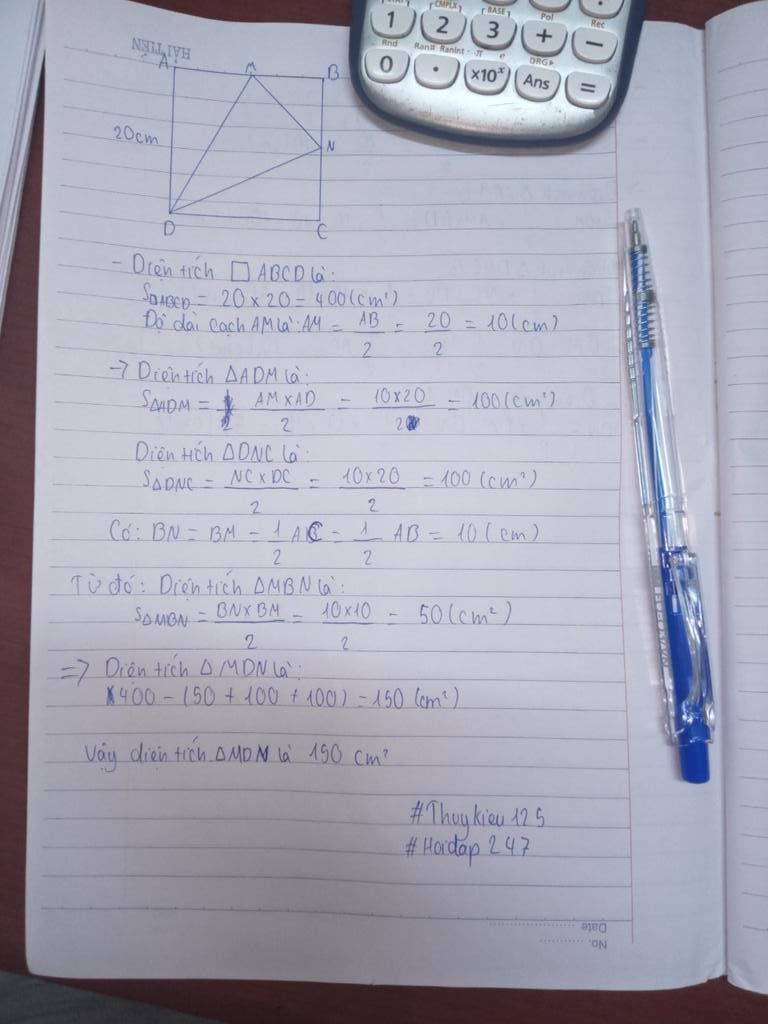 CMPLX
BASE
Pol
Rec
1 2 3 + −
Rnd Ran# RanInt π e DRG▸
0 · ×10ˣ Ans =
HẢI TIẾN
A M B
20cm
N
D C
- Diện tích □ ABCD là:
S□ABCD = 20 x 20 = 400 (cm²)
Độ dài cạch AM là: AM = AB/2 = 20/2 = 10 (cm)
→ Diện tích ΔADM là:
SΔADM = AM x AD/2 = 10 x 20/2 = 100 (cm²)
Diện tích ΔDNC là:
SΔDNC = NC x DC/2 = 10 x 20/2 = 100 (cm²)
Có: BN = BM = 1/2 AC = 1/2 AB = 10 (cm)
Từ đó: Diện tích ΔMBN là:
SΔMBN = BN x BM/2 = 10 x 10/2 = 50 (cm²)
=> Diện tích Δ MDN là:
400 - (50 + 100 + 100) = 150 (cm²)
Vậy diện tích ΔMDN là 150 cm²
#Thuykieu125
#Hoidap247
Date
No.